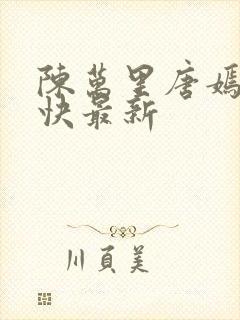 陳萬里唐嫣
快最新
川頁美